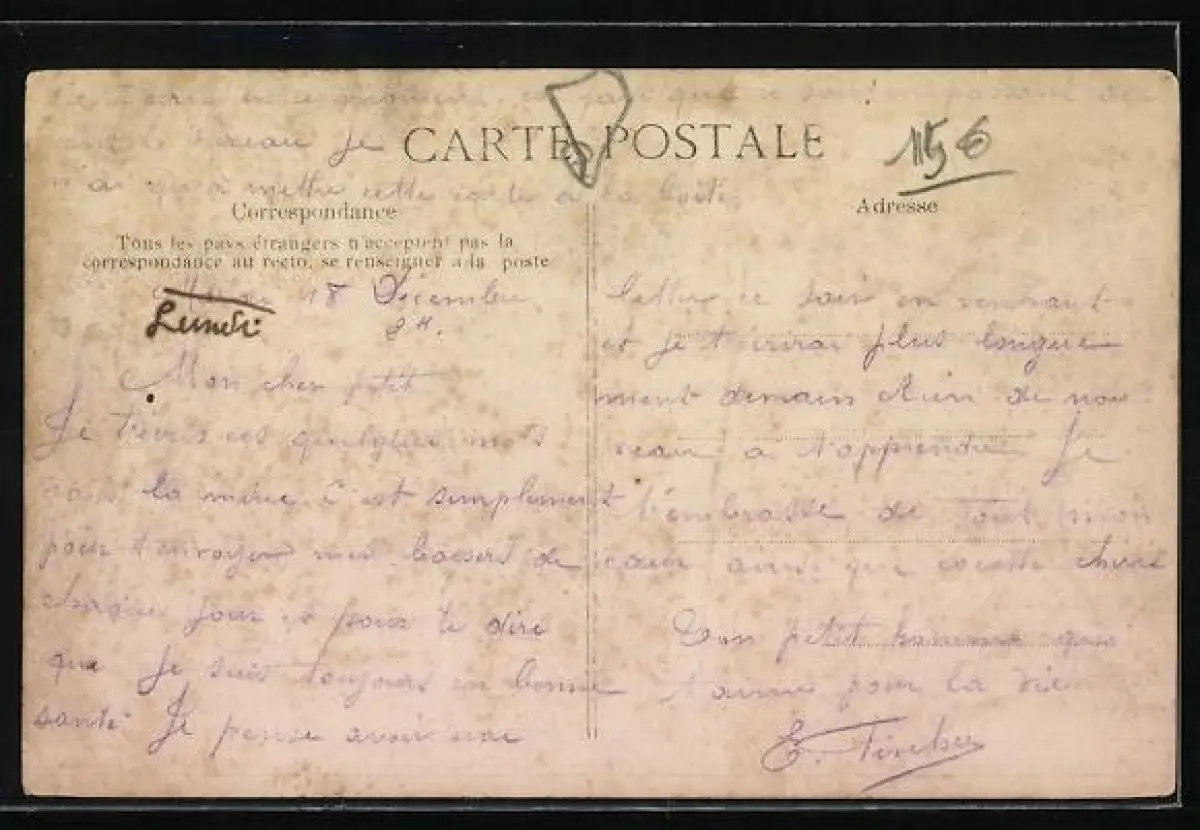 bureau Je
n'ai qu'à mettre cette carte à la boite
CARTE POSTALE
115 6
Correspondance
Adresse
Tous les pays étrangers n'acceptent pas la
correspondance au recto, se renseigner à la poste
18 Décembre
Lundi
9 H.
Mon cher petit
Je t'écris ces quelques mots
la mine c'est simplement
pour t'envoyer mes baisers de
chaque jour et pour te dire
que Je suis toujours en bonne
santé Je pense avoir une
lettre ce soir en rentrant
et je t'écrirai plus longue
ment demain Rien de nou
veau à t'apprendre Je
t'embrasse de tout mon
cœur ainsi que cocotte
Ton petit homme qui
t'aime pour la vie
E.